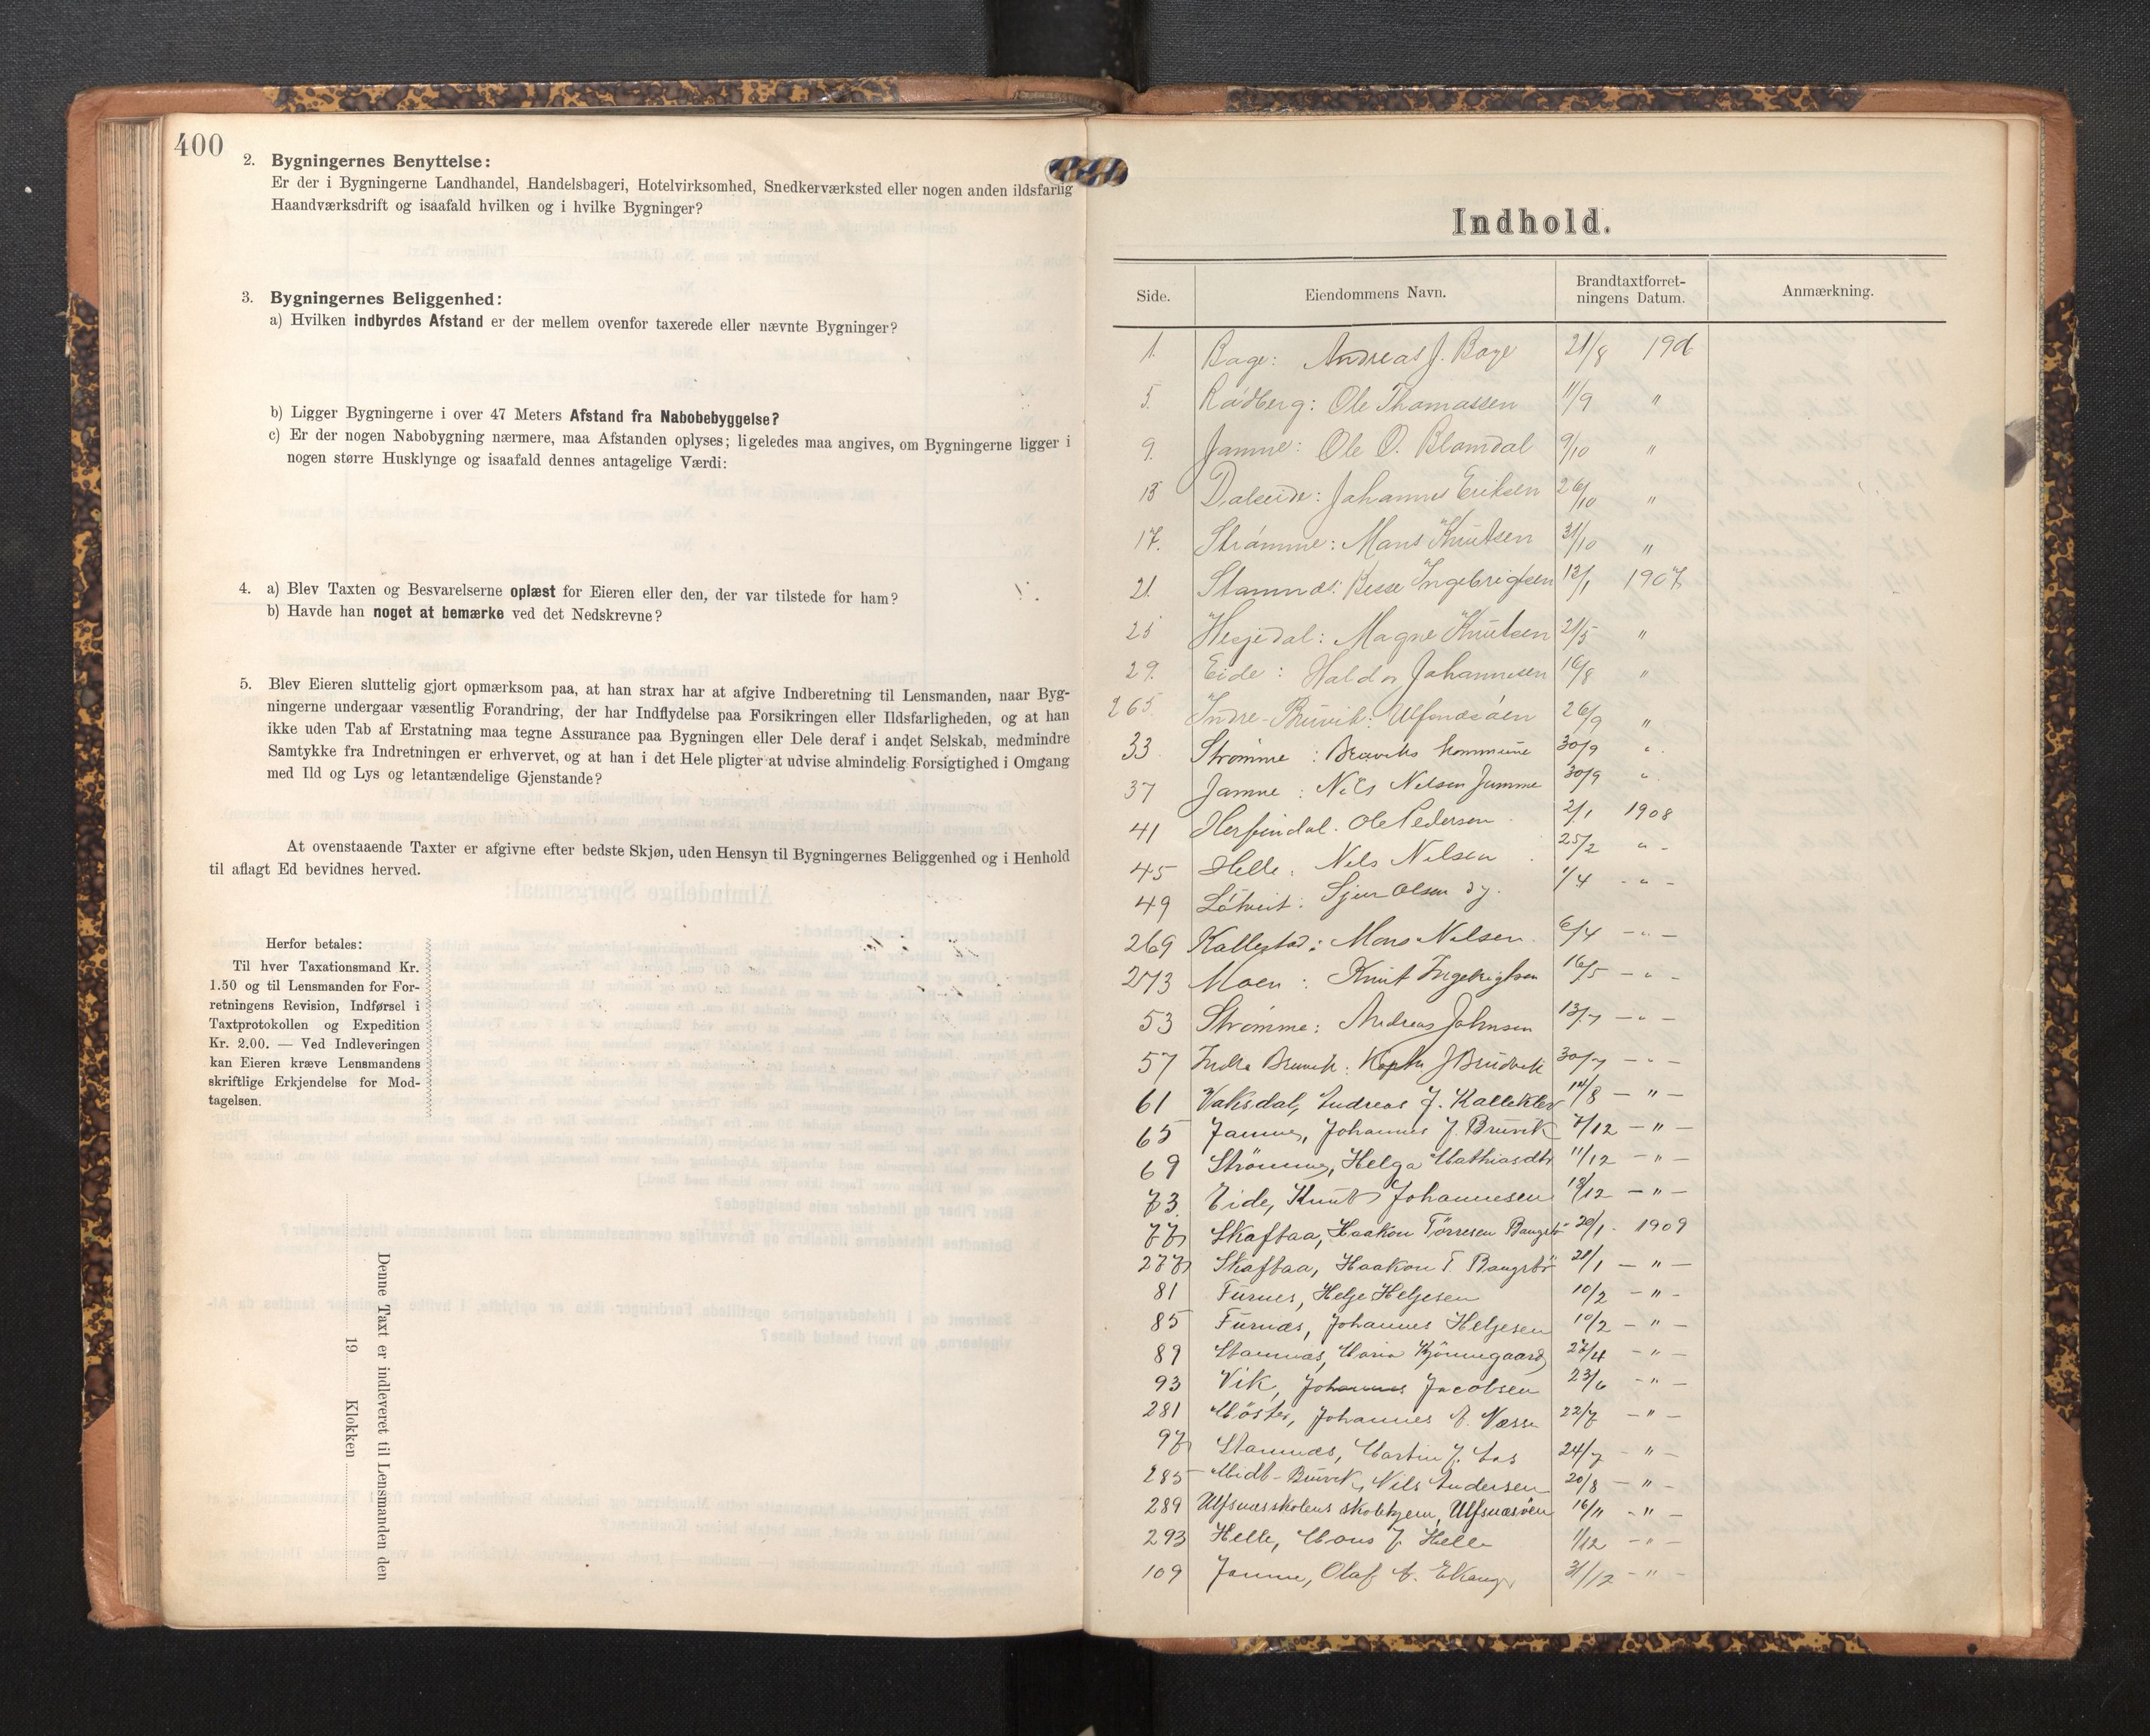 400
2. Bygningernes Benyttelse:
Er der i Bygningerne Landhandel, Handelsbageri, Hotelvirksomhed, Snedkerværksted eller nogen anden ildsfarlig
Haandværksdrift og isaafald hvilken og i hvilke Bygninger?
3. Bygningernes Beliggenhed:
a) Hvilken indbyrdes Afstand er der mellem ovenfor taxerede eller nævnte Bygninger?
b) Ligger Bygningerne i over 47 Meters Afstand fra Nabobebyggelse?
c) Er der nogen Nabobygning nærmere, maa Afstanden oplyses; ligeledes maa angives, om Bygningerne ligger i
nogen større Husklynge og isaafald dennes antagelige Værdi:
4. a) Blev Taxten og Besvarelserne oplæst for Eieren eller den, der var tilstede for ham?
b) Havde han noget at bemærke ved det Nedskrevne?
5. Blev Eieren sluttelig gjort opmærksom paa, at han strax har at afgive Indberetning til Lensmanden, naar Byg-
ningerne undergaar væsentlig Forandring, der har Indflydelse paa Forsikringen eller Ildsfarligheden, og at han
ikke uden Tab af Erstatning maa tegne Assurance paa Bygningen eller Dele deraf i andet Selskab, medmindre
Samtykke fra Indretningen er erhvervet, og at han i det Hele pligter at udvise almindelig Forsigtighed i Omgang
med Ild og Lys og letantændelige Gjenstande?
At ovenstaaende Taxter er afgivne efter bedste Skjøn, uden Hensyn til Bygningernes Beliggenhed og i Henhold
til aflagt Ed bevidnes herved.
Herfor betales:
Til hver Taxationsmand Kr.
1.50 og til Lensmanden for For-
retningens Revision, Indførsel i
Taxtprotokollen og Expedition
Kr. 2.00. — Ved Indleveringen
kan Eieren kræve Lensmandens
skriftlige Erkjendelse for Mod-
tagelsen.
Denne Taxt er indleveret til Lensmanden den
19 Klokken
Indhold.
Side. Eiendommens Navn. Brandtaxtforret-
ningens Datum. Anmærkning.
1. Bage: Andreas J. Bage 21/8 1906
5. Rødberg: Ole Thomassen 11/9 "
9. Jamne: Ole O. Blomdal 9/10 "
13 Daleide: Johannes Eriksen 26/10 "
17. Strømme: Mons Knutsen 31/10 "
21. Stamnæs: Besse Ingebrigtsen 12/1 1907
25 Hesjedal: Magne Knutsen 21/5 "
29. Eide: Haldor Johannesen 16/8 "
265. Indre-Bruvik: Ulfsnæsøen 26/9 "
33 Strømme: Bruviks kommune 30/9 "
37 Jamne: Nils Nilsen Jamne 30/9 "
41 Herfindal. Ole Pedersen 2/1 1908
45 Helle: Nils Nilsen 25/2 " -
49 Løtveit: Sjur Olsen dy. 1/4 - " -
269 Kallestad: Mons Nilsen 6/4 - " -
273 Moen: Knut Ingebrigtsen 16/5 - " -
53 Strømme: Andreas Johnsen 13/7 - " -
57 Indre Bruvik: J Bruvik 30/7 - " -
61 Vaksdal, Andreas J. Kalleklev 14/8 - " -
65 Jamne, Johannes J. Bruvik 7/12 - " -
69 Strömme, Helga Mathiasdtr 11/12 - " -
73. Eide, Knut Johannesen 18/12 - " -
77 Skaftaa, Haakon Tørresen Baugstö 20/1. 1909
277 Skaftaa, Haakon T Baugstö 21/1 - " -
81 Furnes, Helje Heljesen 10/2 - " -
85 Furnæs, Johannes Heljesen 10/2 - " -
89 Stamnæs, Maria 27/4 - " -
93 Vik, Johannes Jacobsen 23/6 - " -
281 Möster, Johannes A. Næsse 22/7 - " -
97 Stamnæs, Martin J. 24/7 - " -
285 Midt-Bruvik, Nils Andersen 20/8 - " -
289 Ulfsnæsskolens skolehjem, Ulfsnæsöen 16/11 - " -
293 Helle, Mons J. Helle 1/12 - " -
109 Jamne, Olaf A. Ekanger 31/12 - " -